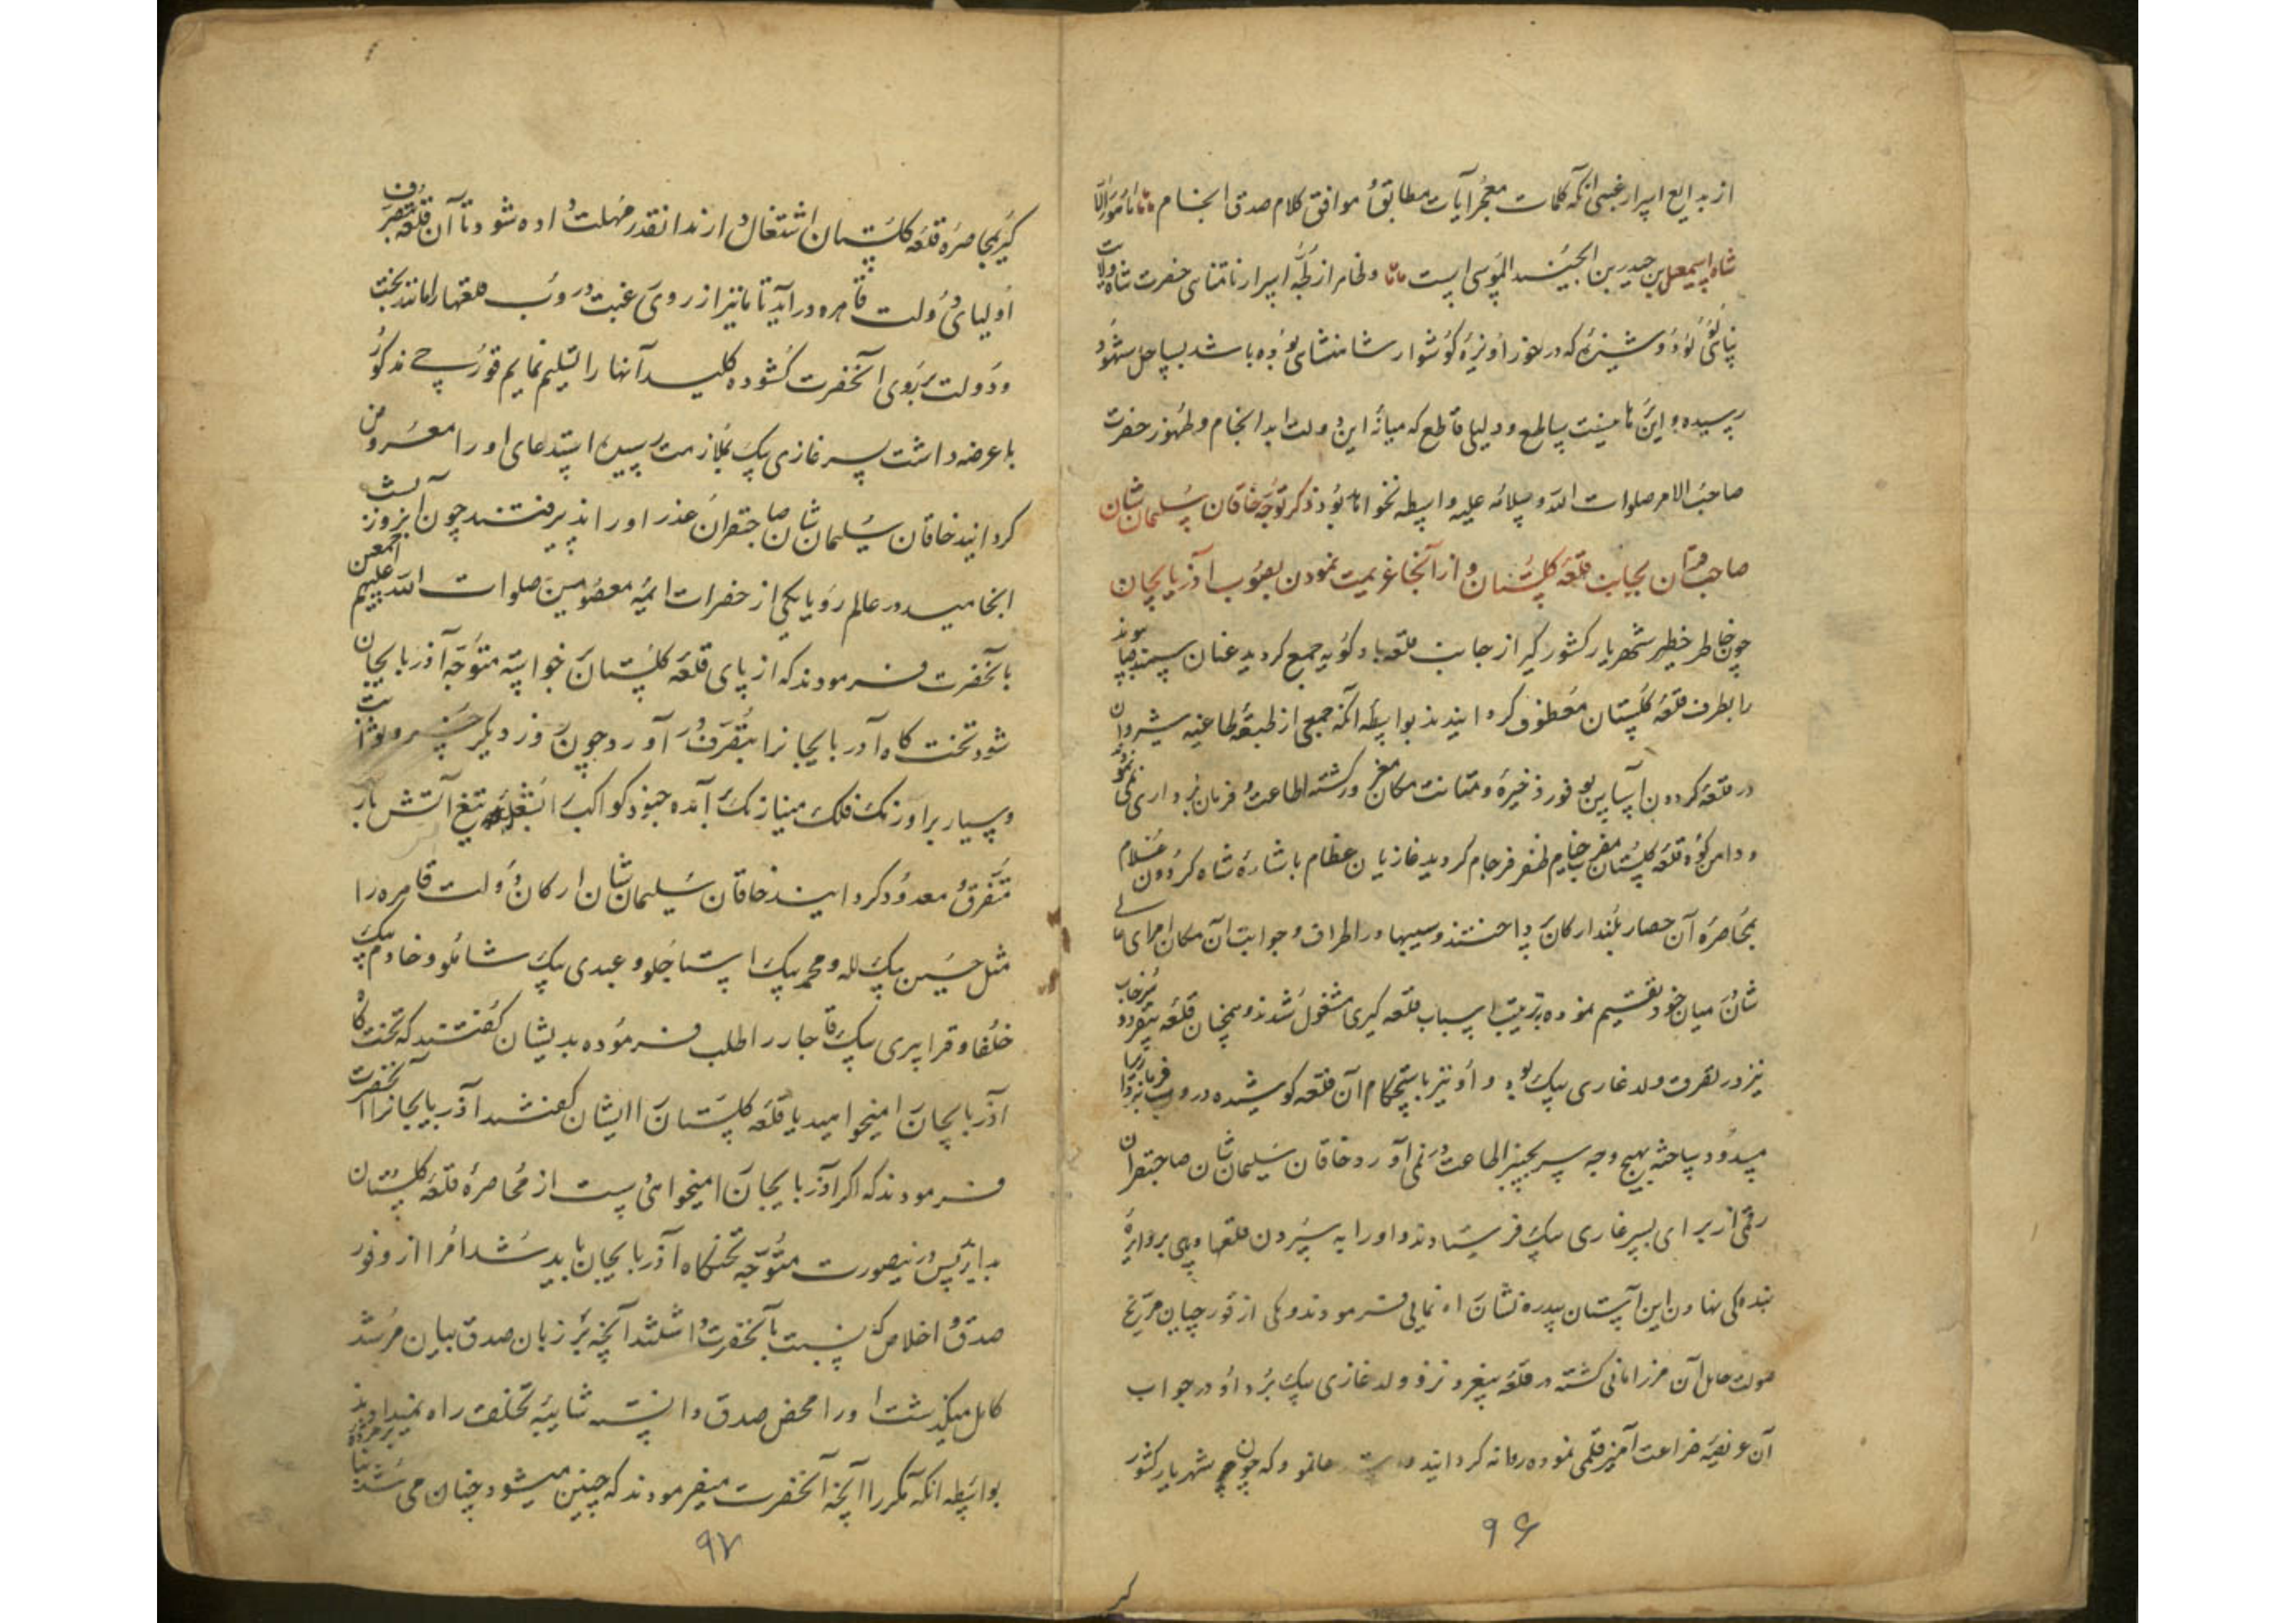 از بدایع اسرار غیبی آنکه کلمات معجز آیات مطابق و موافق کلام صدق انجام
شاه اسمعیل بن حیدر بن الجنید الموسوی است ولخامر از لجهٔ اسرار نامتناهی حضرت شاه ولایت
پناهی لؤلؤ که در خور آویزهٔ گوشوار شاهنشاهی بوده باشد بساحل شهود
رسیده و این ساطع و دلیلی قاطع که میانهٔ این دولت ابد انجام و ظهور حضرت
صاحب الامر صلوات الله و سلامه علیه واسطه نخواهد بود ذکر توجه خاقان سلیمان شان
صاحبقران بجانب قلعهٔ گلستان و از آنجا عزیمت نمودن بصوب آذربایجان
چون خاطر خطیر شهریار کشور گیر از جانب قلعه بادکوبه جمع گردید عنان سمند
را بطرف قلعهٔ گلستان معطوف گردانیدند بواسطه آنکه جمعی از طبقهٔ طاغیه شیروان
در قلعه گردون آسا بوفور ذخیره و متانت مکان مغرور گشته اطاعت و فرمان برداری نمی
و دامن کوه قلعه گلستان مضرب خیام ظفر فرجام گردید غازیان عظام باشارهٔ شاه گردون غلام
بمحاصرهٔ آن حصار بلند ارکان پرداختند و سیبها در اطراف و جوانب آن مکان امرای عالی
شان میان خود تقسیم نموده بترتیب اسباب قلعه گیری مشغول شدند و همچنان قلعه
نیز در تصرف ولد غازی بیک بود و او نیز باستحکام آن قلعه کوشیده در
مسدود ساخته بهیچ وجه سر بچنبر اطاعت در نمی آورد خاقان سلیمان شان صاحبقران
رقمی از برای پسر غازی بیک فرستادند و او را به سپردن قلعها و
بنده کی نهادن این آستان سدره نشان راه نمایی فرمودند و یکی از قورچیان مریخ
صولت حامل آن فرمان گشته در قلعه نزد ولد غازی بیک برد او در جواب
آن عریضهٔ ضراعت آمیز قلمی نموده روانه گردانید که چون شهریار کشور
۹۶
گیر بمحاصره قلعه گلستان اشتغال دارند آنقدر مهلت داده شود تا آن قلعه بتصرف
اولیای دولت قاهره درآید تا ما نیز از روی رغبت دروب قلعها را مانند بخت
و دولت بروی آنحضرت گشوده کلید آنها را تسلیم نمایم قورچی مذکور
با عرضه داشت پسر غازی بیک بملازمت رسیده استدعای او را معروض
گردانید خاقان سلیمان شان صاحبقران عذر او را پذیرفتند چون آنروز
انجامید در عالم رویا یکی از حضرات ائمه معصومین صلوات الله علیهم اجمعین
بآنحضرت فرمودند که از پای قلعه گلستان خواسته متوجه آذربایجان
شود تخت گاه آذربایجانرا بتصرف آورد چون روز دیگر خسرو ثوابت
و سیار بر اورنگ فلک مینا رنگ آمده جنود کواکب را تیغ آتش بار
متفرق و معدود گردانید خاقان سلیمان شان ارکان دولت قاهره را
مثل حسین بیک لله و محمد بیک استاجلو و عبدی بیک شاملو و خادم بیک
خلفا و قرا پیری بیک قاجار را طلب فرموده بدیشان گفتند که تخت گاه
آذربایجان را میخواهید یا قلعه گلستان را ایشان گفتند آذربایجانرا آنحضرت
فرمودند که اگر آذربایجان را میخواهید دست از محاصرهٔ قلعه گلستان
بدارید پس درینصورت متوجه تختگاه آذربایجان باید شد امرا از وفور
صدق و اخلاص که نسبت بآنحضرت داشتند آنچه بر زبان صدق بیان مرشد
کامل میگذشت او را محض صدق دانسته شایبهٔ تخلف راه نمیدادند
بواسطه آنکه مکررا آنچه آنحضرت میفرمودند که چنین میشود چنان می شد
۹۷